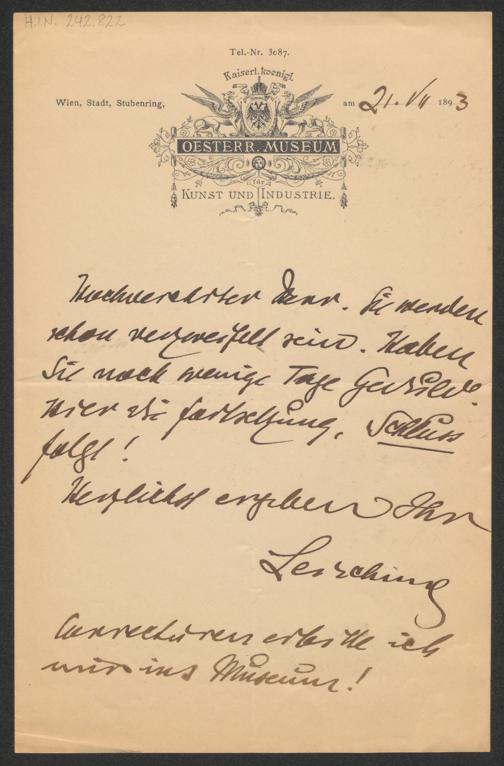 H.I.N. 242.822
Tel.-Nr. 3087.
Kaiserl. koenigl.
Wien, Stadt, Stubenring, am 21. VII 1893
OESTERR. MUSEUM
für
KUNST UND INDUSTRIE.
Hochverehrter Herr. Sie werden
schon verzweifelt sein. Haben
Sie noch wenige Tage Geduld.
Hier die Fortsetzung, Schluss
folgt!
Herzlichst ergeben Ihr
Leisching
Correcturen erbitte ich
mir ins Museum!